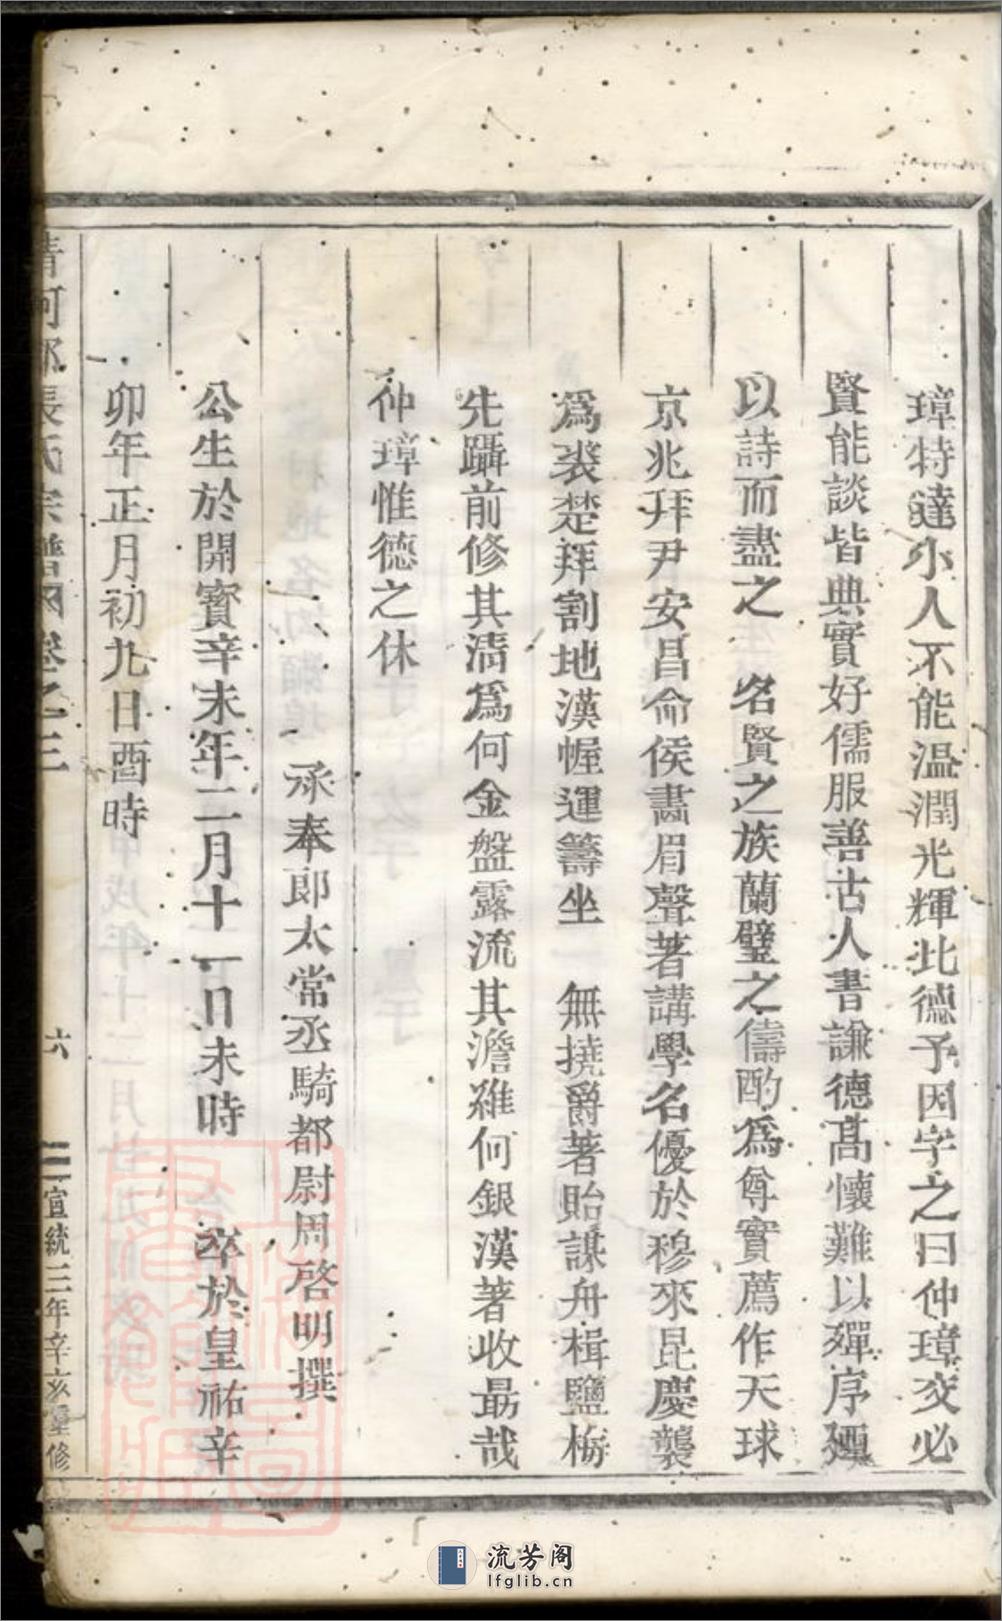 璋特達小人不能溫潤光輝比德予因字之曰仲璋交必
賢能談皆典實好儒服善古人書謙德高懷難以殫序廼
以詩而盡之　名賢之族蘭璧之儔酌為尊實薦作天球
京兆拜尹安昌命侯畵眉聲著講學名優於穆來昆慶襲
為裘楚拜割地漢幄運籌坐　無撓爵著貽謀舟楫鹽梅
先躡前修其清為何金盤露流其澹維何銀漢著收朂哉
仲璋惟德之休
承奉郎太常丞騎都尉周啓明撰
公生於開寳辛未年二月十一日未時　卒於皇祐辛
卯年正月初九日酉時
清河郡張氏宗譜　卷之三　六　宣統三年辛亥重修
流芳阁
lfglib.cn